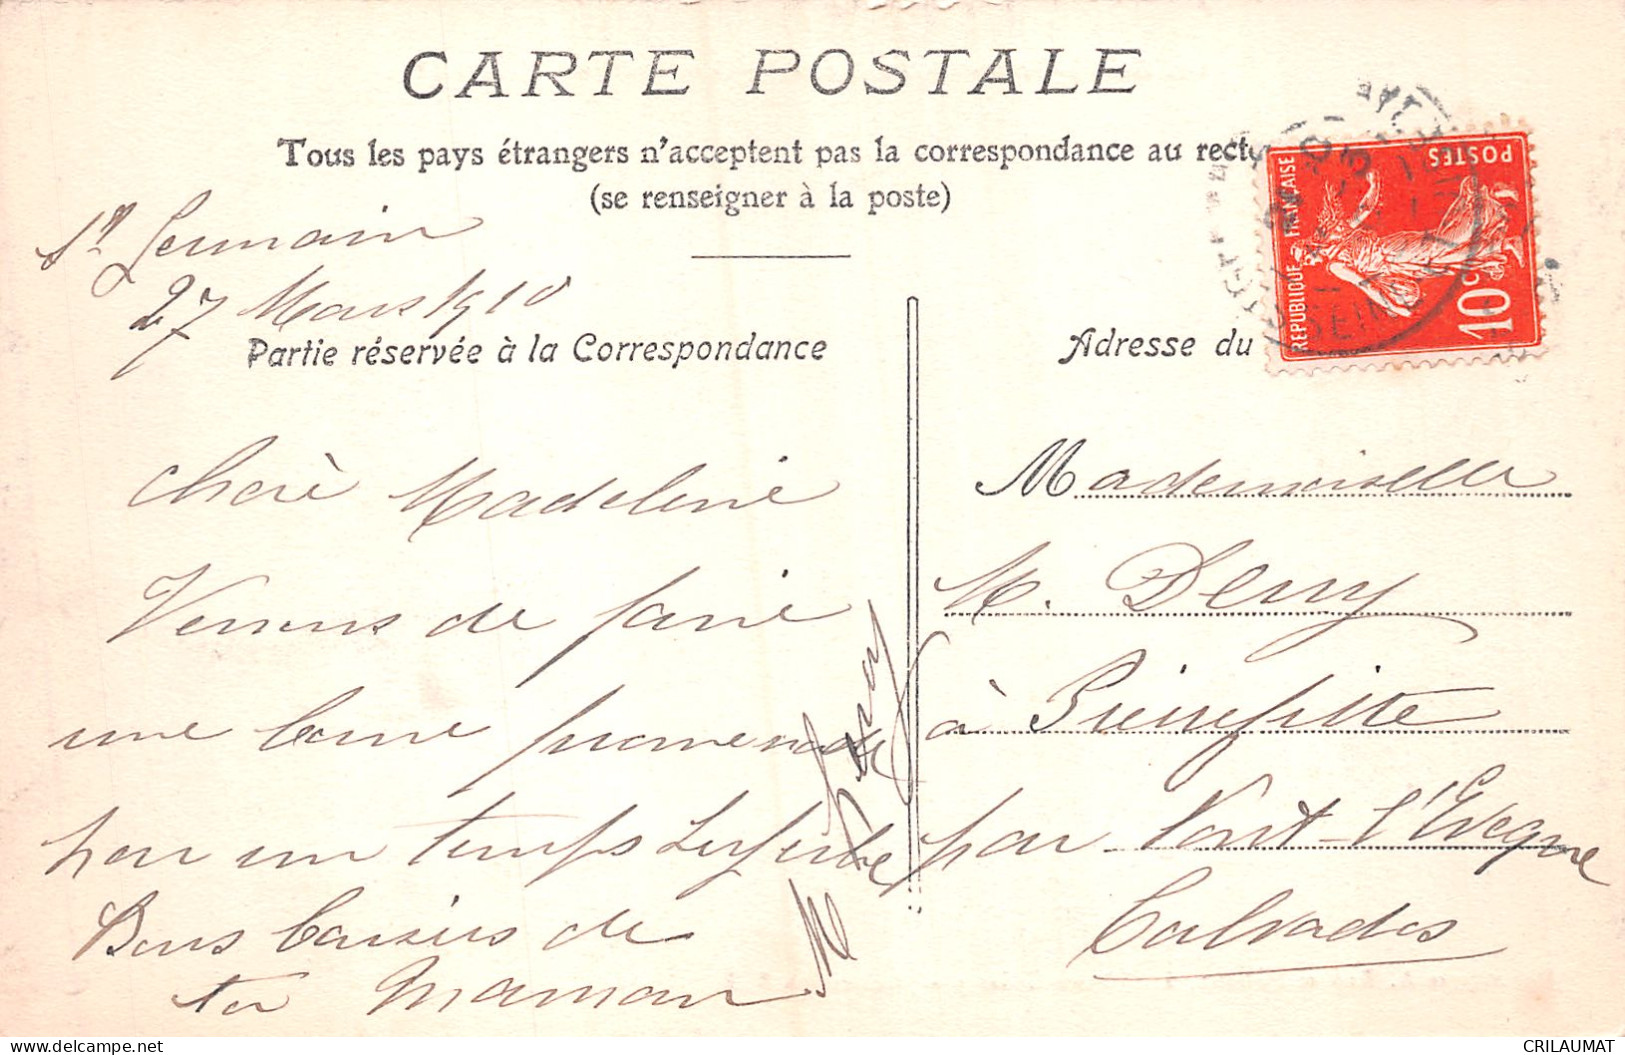 CARTE POSTALE
Tous les pays étrangers n'acceptent pas la correspondance au recto
(se renseigner à la poste)
St Germain
27 Mars 1910
Partie réservée à la Correspondance
Adresse du
REPUBLIQUE FRANÇAISE
POSTES
10c
SEINE
chère Madeleine
Venons de faire
une bonne promenade
par un temps superbe
Bons baisers de
ta Maman
M
Mademoiselle
M.
à Pierrefitte
par Pont-l'Evêque
Calvados
CRILAUMAT